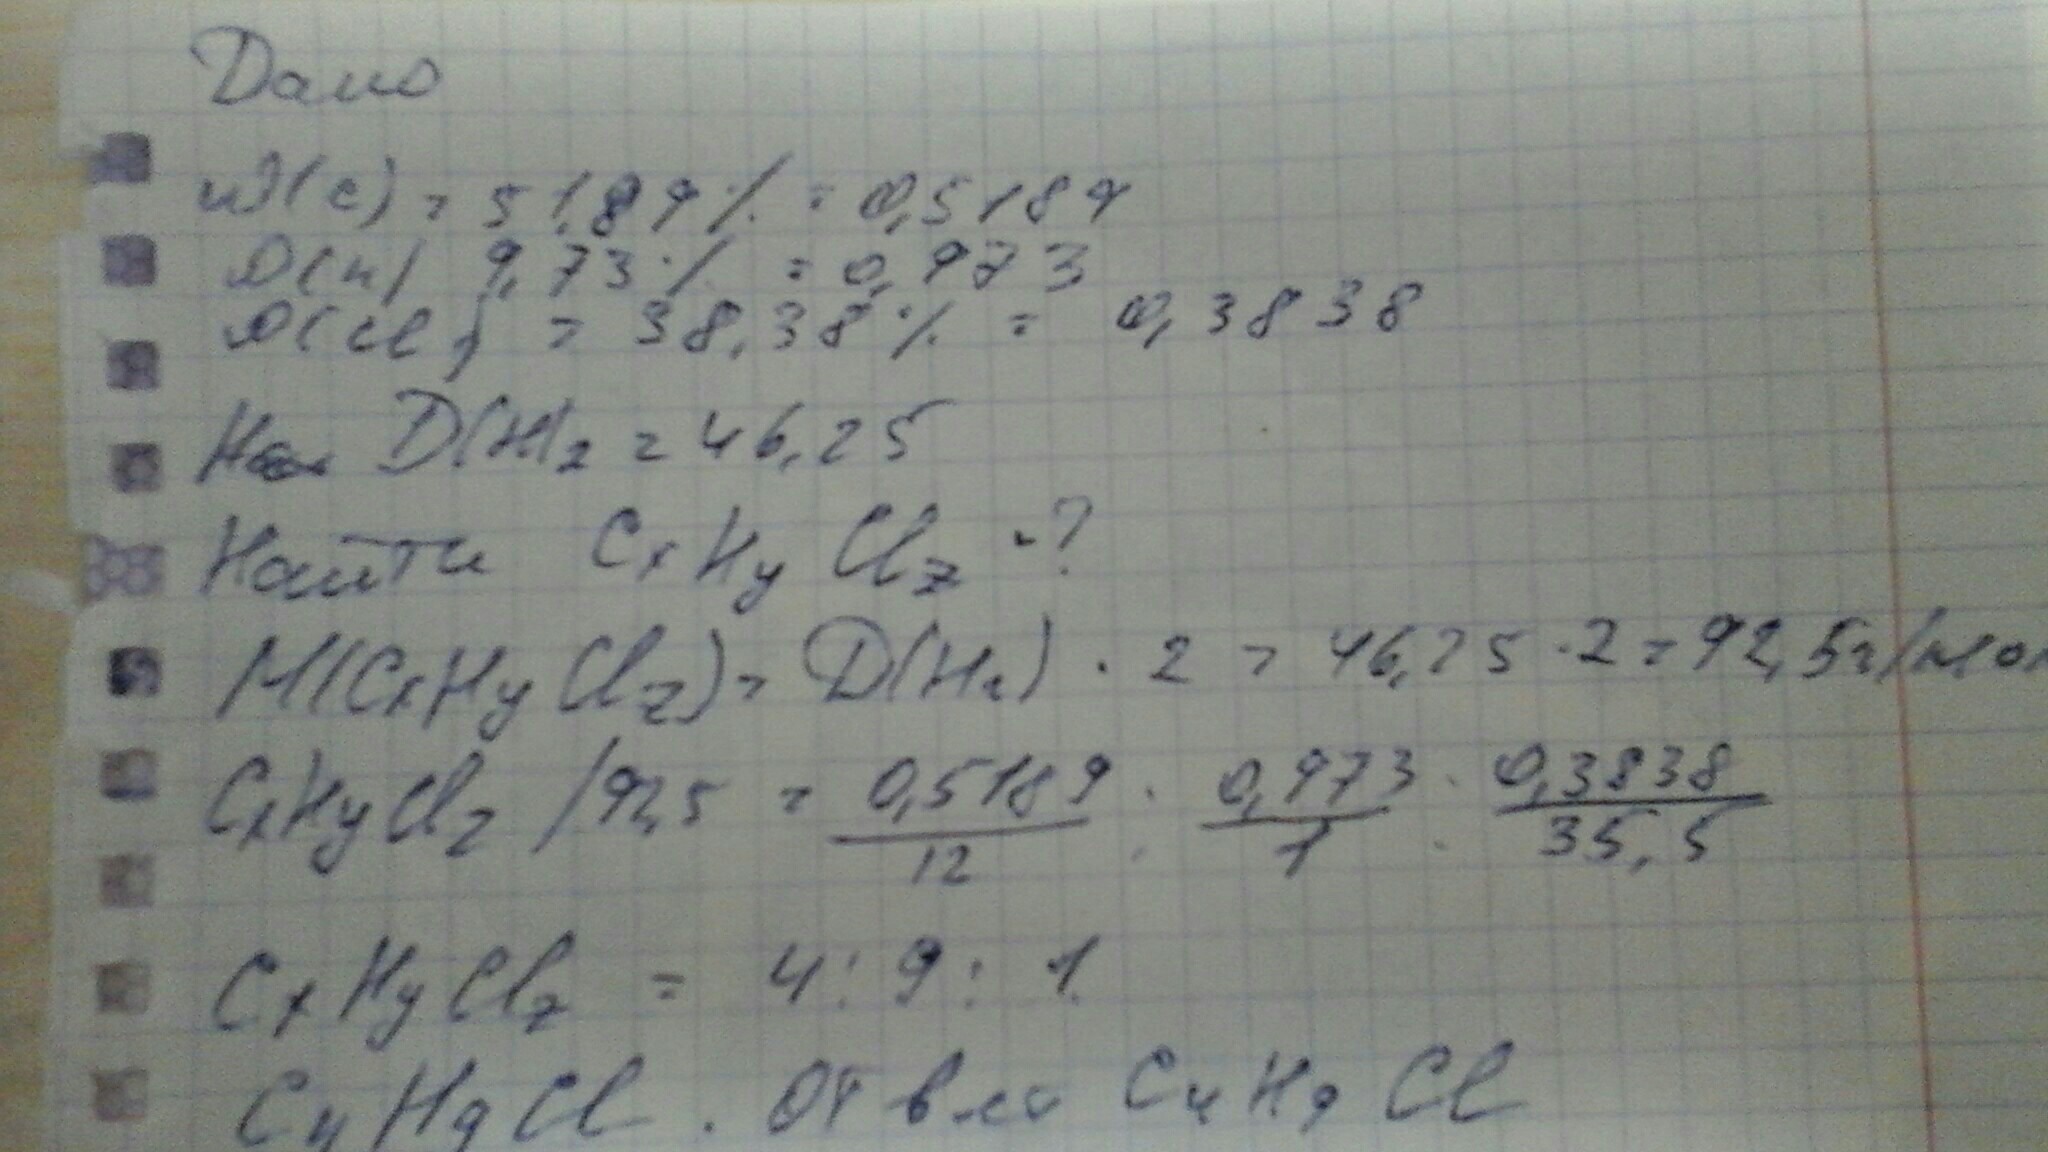 Дано
ω(c) = 51,89% = 0,5189
ω(н) 9,73% = 0,973
ω(Cl) = 38,38% = 0,3838
D(H)2 = 46,25
Найти CxHyClz -?
M(CxHyClz) = D(H2) · 2 = 46,25 · 2 = 92,5г/мол
CxHyClz /92,5 = 0,5189/12 : 0,973/1 : 0,3838/35,5
CxHyClz = 4 : 9 : 1
C4H9Cl. Ответ C4H9Cl